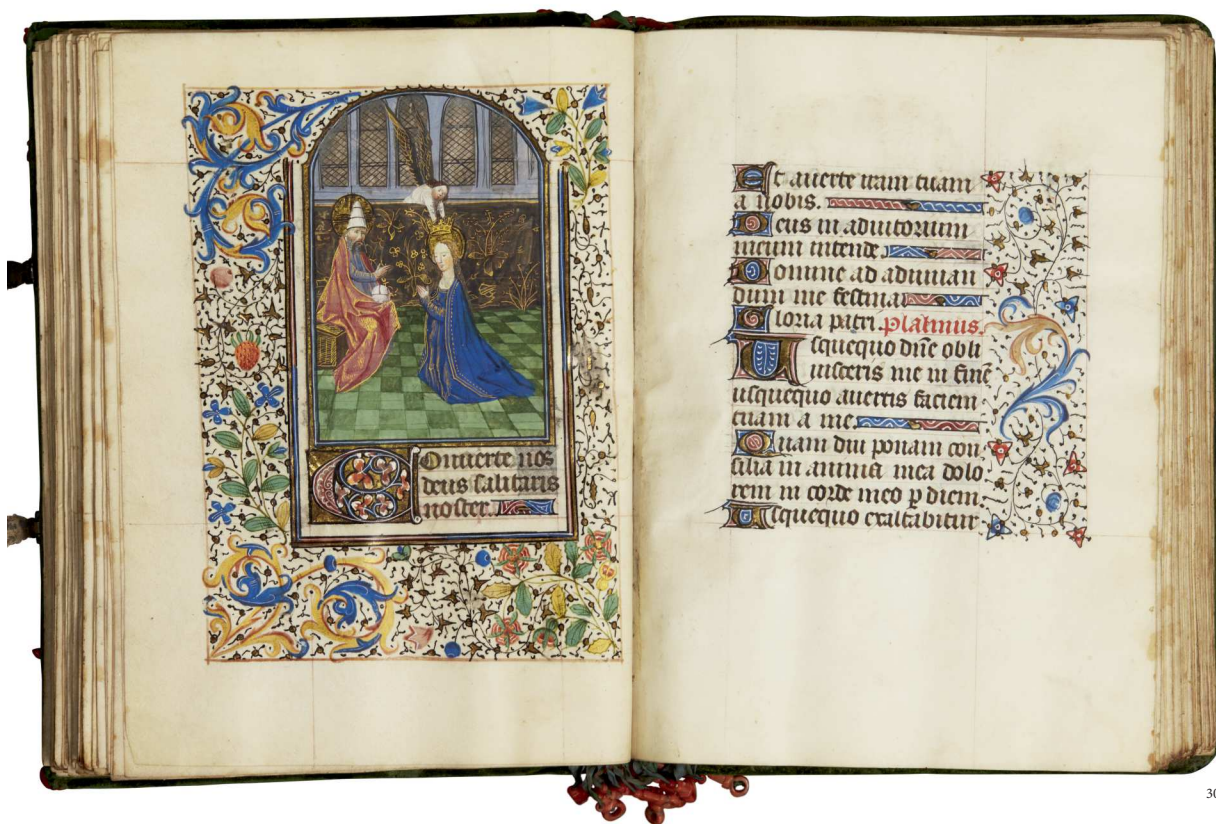 Onuerte nos
deus salutaris
noster.
Et auerte iram tuam
a nobis.
Deus in adiutorium
meum intende
Domine ad adiuuan
dum me festina
Gloria patri. Psalmus.
Usquequo dñe obli
uisceris me in finẽ
usquequo auertis faciem
tuam a me.
Quam diu ponam con
silia in anima mea dolo
rem in corde meo p diem
Usquequo exaltabitur
30